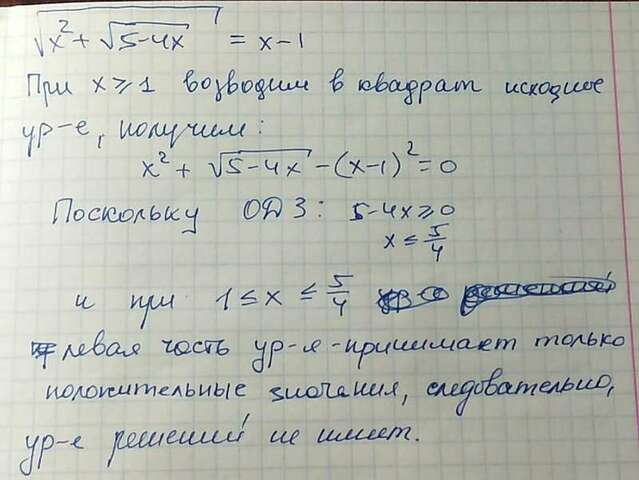 √(x² + √(5-4x)) = x-1
При x ≥ 1 возводим в квадрат исходное
ур-е, получим:
x² + √(5-4x) - (x-1)² = 0
Поскольку ОДЗ: 5-4x ≥ 0
x ≤ 5/4
и при 1 ≤ x ≤ 5/4
левая часть ур-я - принимает только
положительные значения, следовательно,
ур-е решений не имеет.